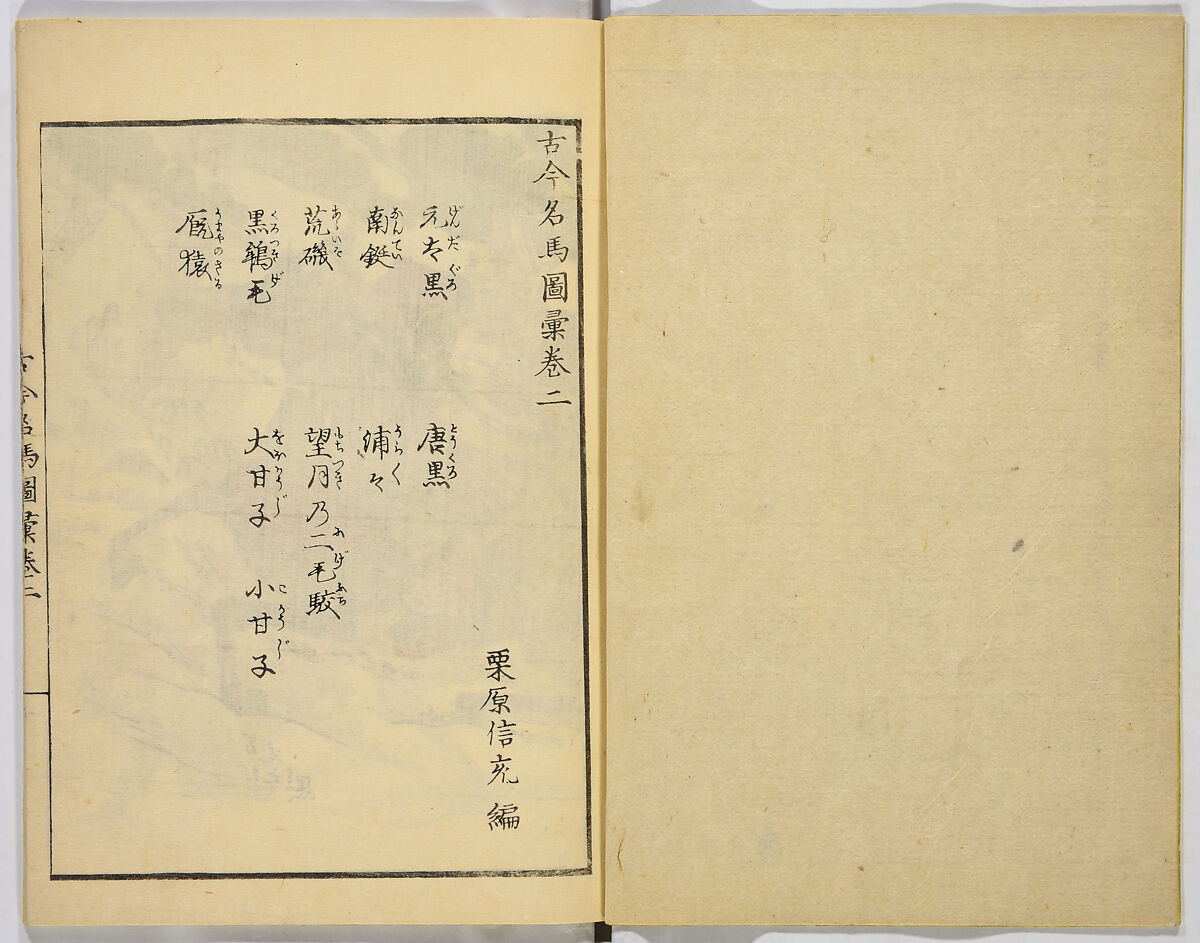 古今名馬圖彙巻二
栗原信充編
元太黒
げんだぐろ
唐黒
とうくろ
南鋌
なんてい
浦々
うらく
荒磯
あらいそ
望月乃二毛駮
もちつき にげぶち
黒鴾毛
くろつきげ
大甘子
おほかうじ
小甘子
こかうじ
厩猿
うまやのさる
古今名馬圖彙巻二